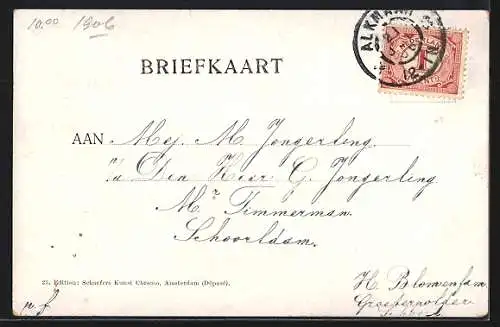 10.00 1906
ALKMAAR
BRIEFKAART
AAN Mej. M. Jongerling.
Den Heer G. Jongerling
Mr Timmerman.
Schoorldam.
23. Edition: Schaefers Kunst Chromo, Amsterdam (Déposé).
H. Blomendam
n. f.